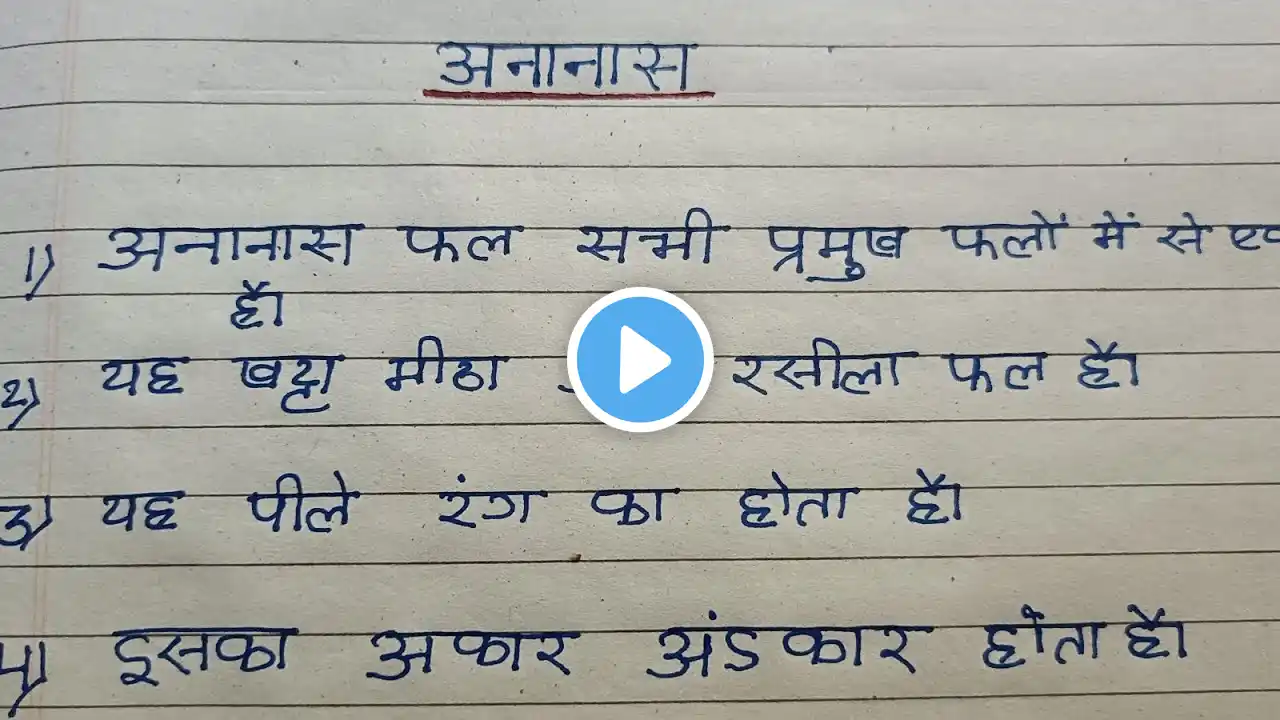 अनानास
1) अनानास फल सभी प्रमुख फलों में से
है।
2) यह खट्टा मीठा रसीला फल है।
3) यह पीले रंग का होता है।
4) इसका अकार अंडकार होता है।